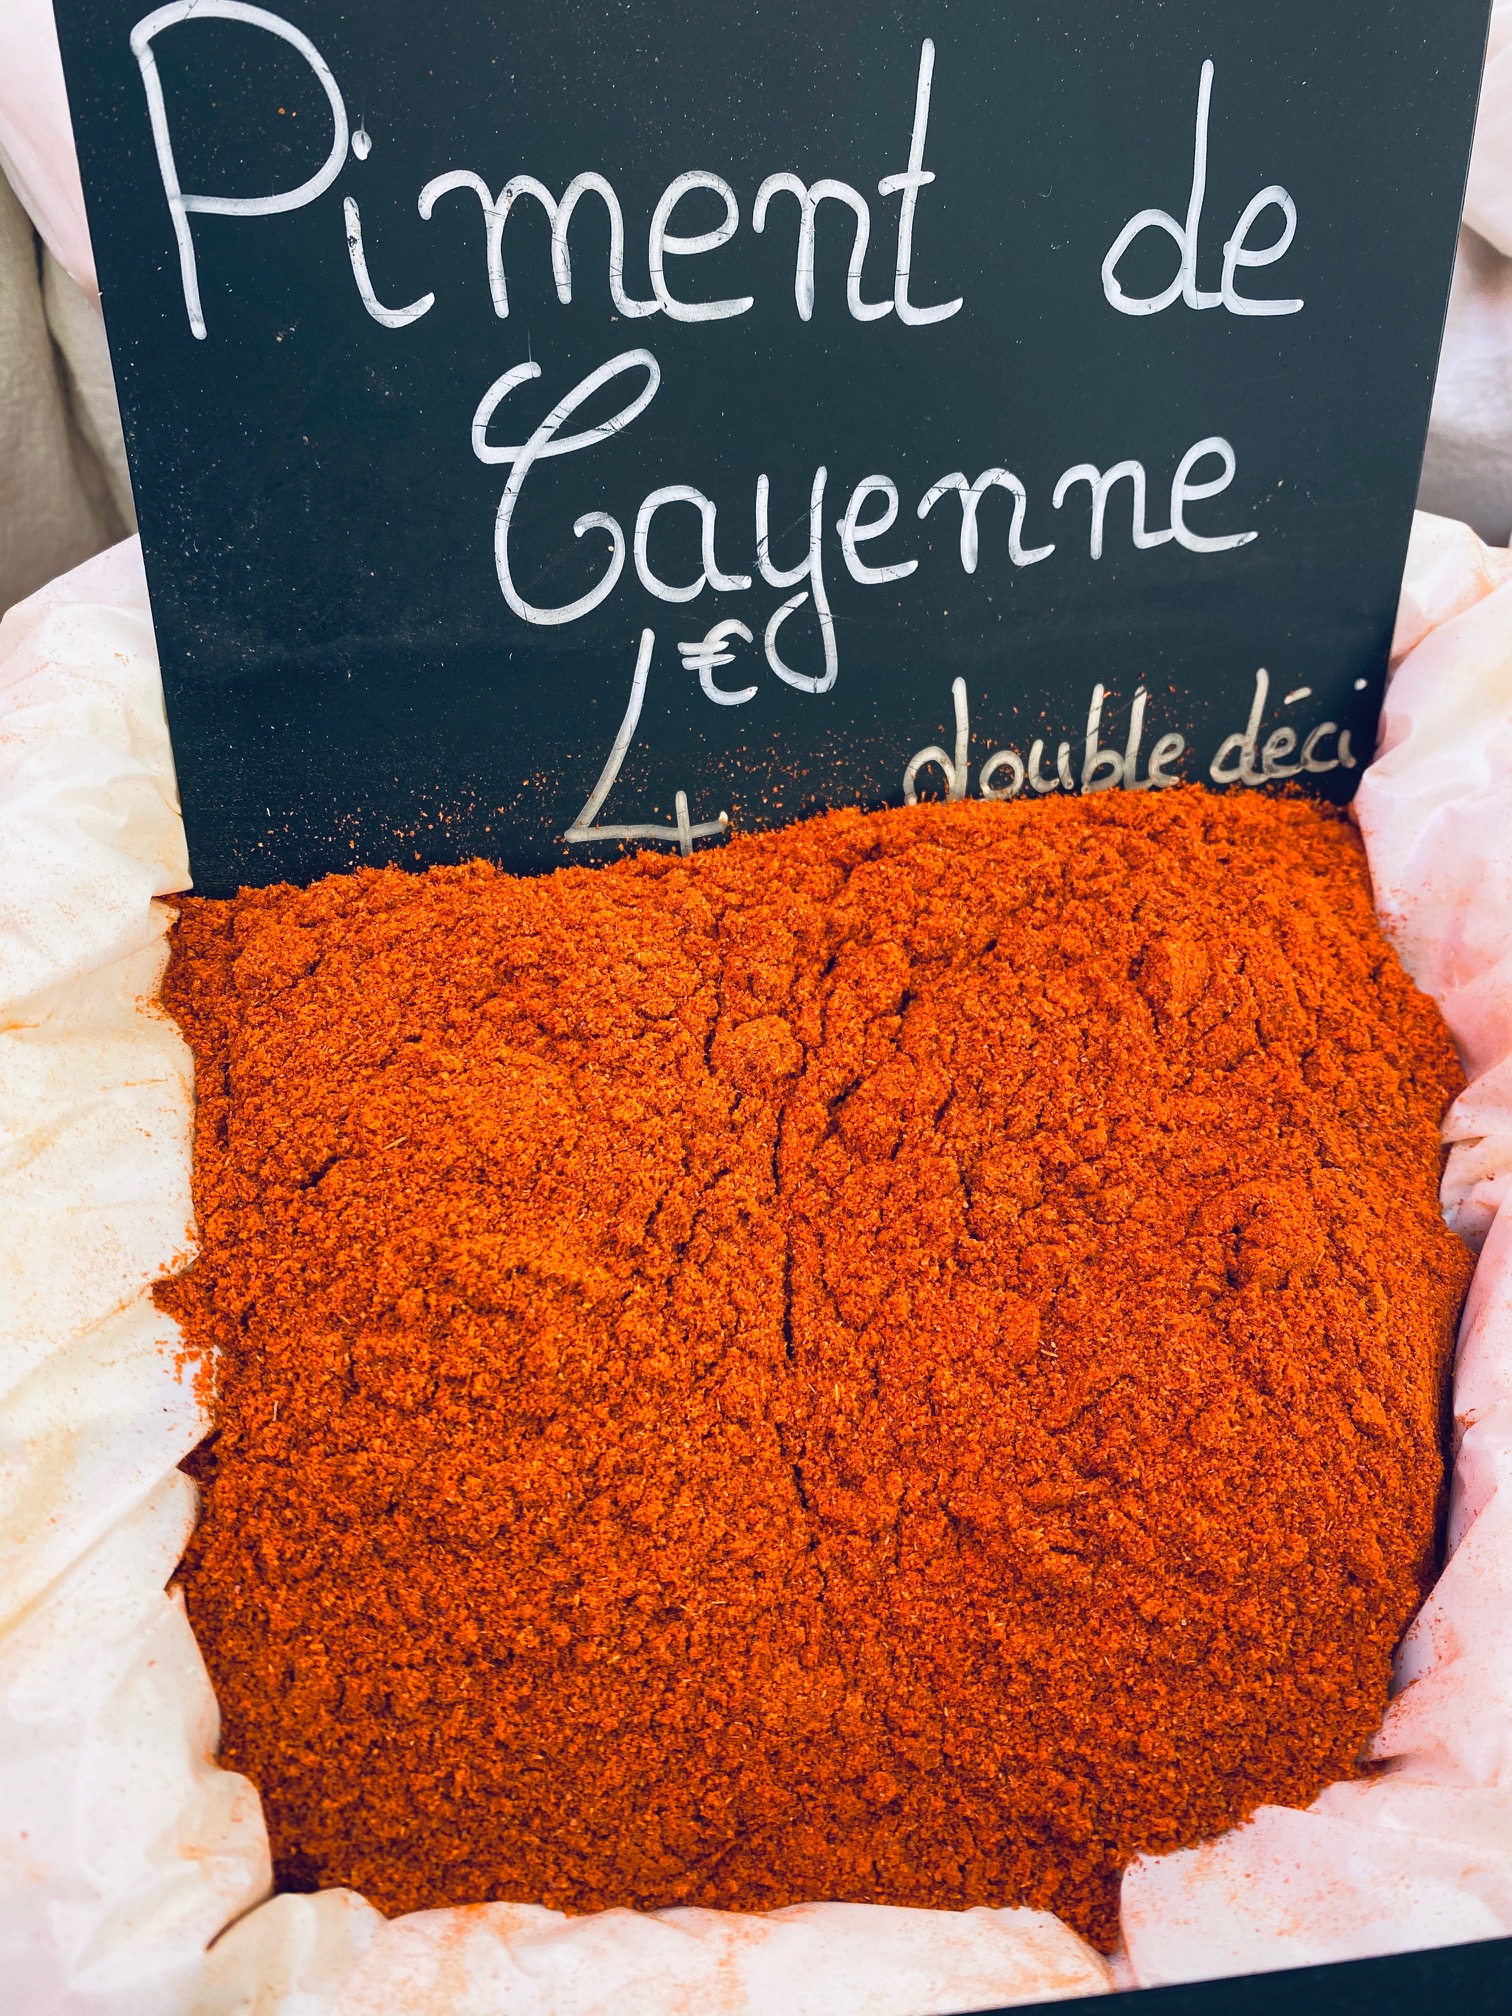 Piment de
Cayenne
4€
double déci